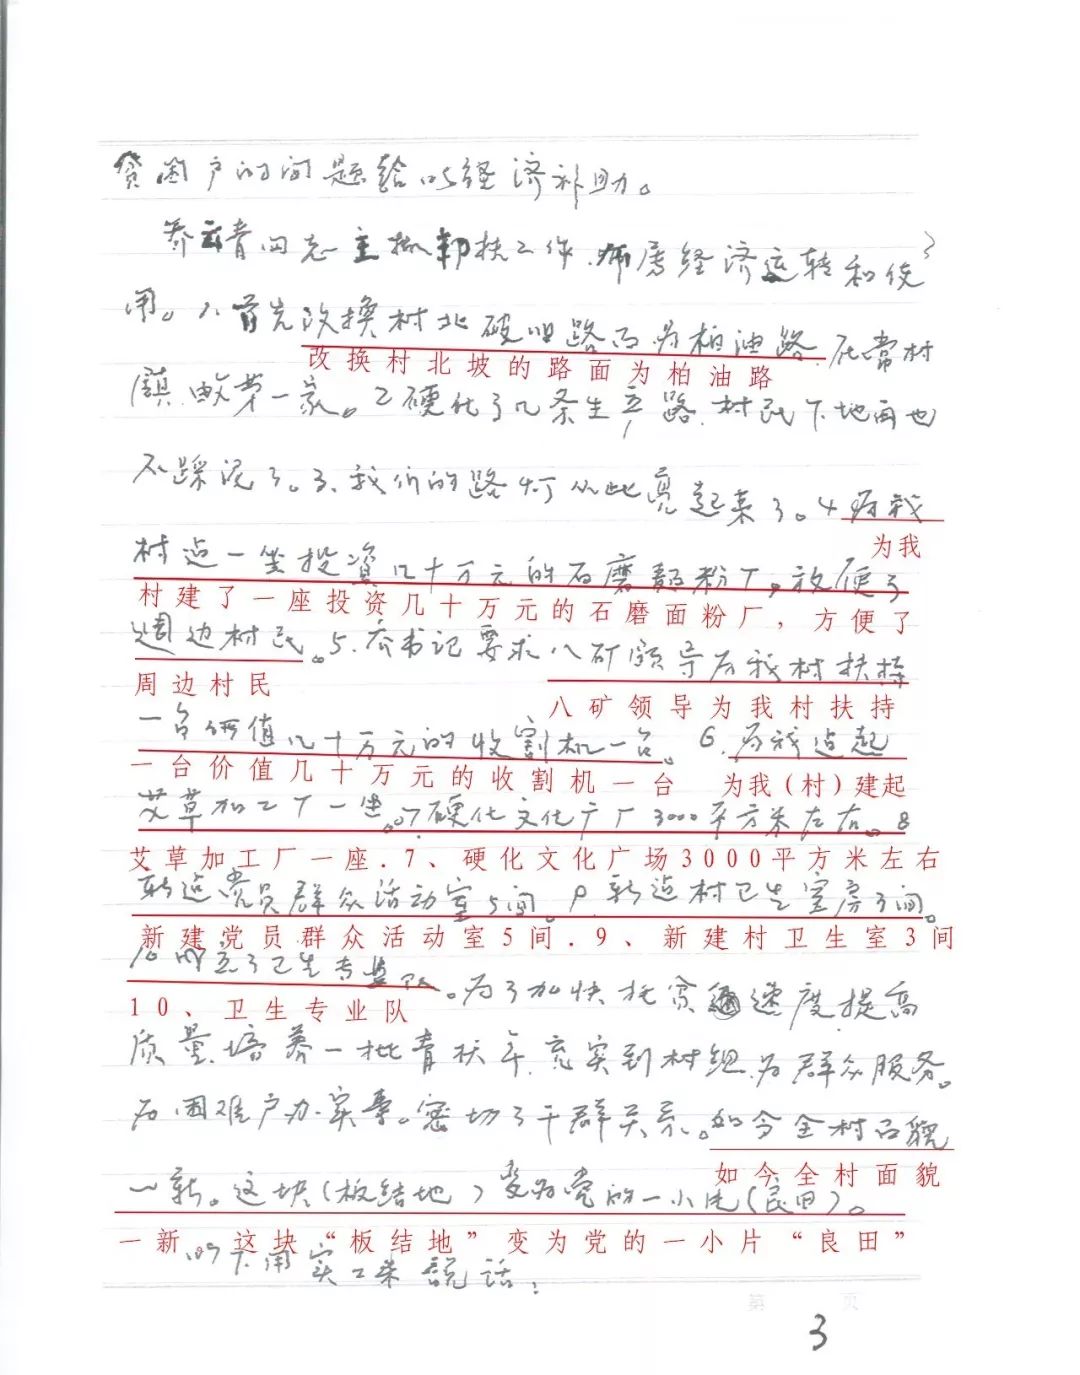 贫困户的问题给以经济补助。
乔云青同志主抓帮扶工作.师彦经济运转和使
用。1.首先改换村北破旧路面为柏油路.在常村
改换村北坡的路面为柏油路
镇.由数第一家。2硬化了几条生产路.村民下地再也
不踩泥了。3、我们的路灯从此亮起来了。4为我
为我
村造一坐投资几十万元的石磨麺粉厂,放便了
村建了一座投资几十万元的石磨面粉厂，方便了
週边村民。5.乔书记要求八矿领导为我村扶持
周边村民
八矿领导为我村扶持
一台価值几十万元的收割机一台。6.为我造起
一台价值几十万元的收割机一台 为我(村)建起
艾草加工厂一坐。7硬化文化广厂3000平方米左右。8
艾草加工厂一座.7、硬化文化广场3000平方米左右
新造党员群众活动室5间。9新造村卫生室房3间。
新建党员群众活动室5间.9、新建村卫生室3间
10成立了卫生专业队。为了加快托贫速度提高
10、卫生专业队
质量.培养一批青状年.充实到村组.为群众服务。
为困难户办实事。密切了干群关系。如今全村面貌
如今全村面貌
一新。这块(板结地)变为党的一小片(良田)。
一新 这块“板结地”变为党的一小片“良田”
以下用实工来説话:
第 页
3